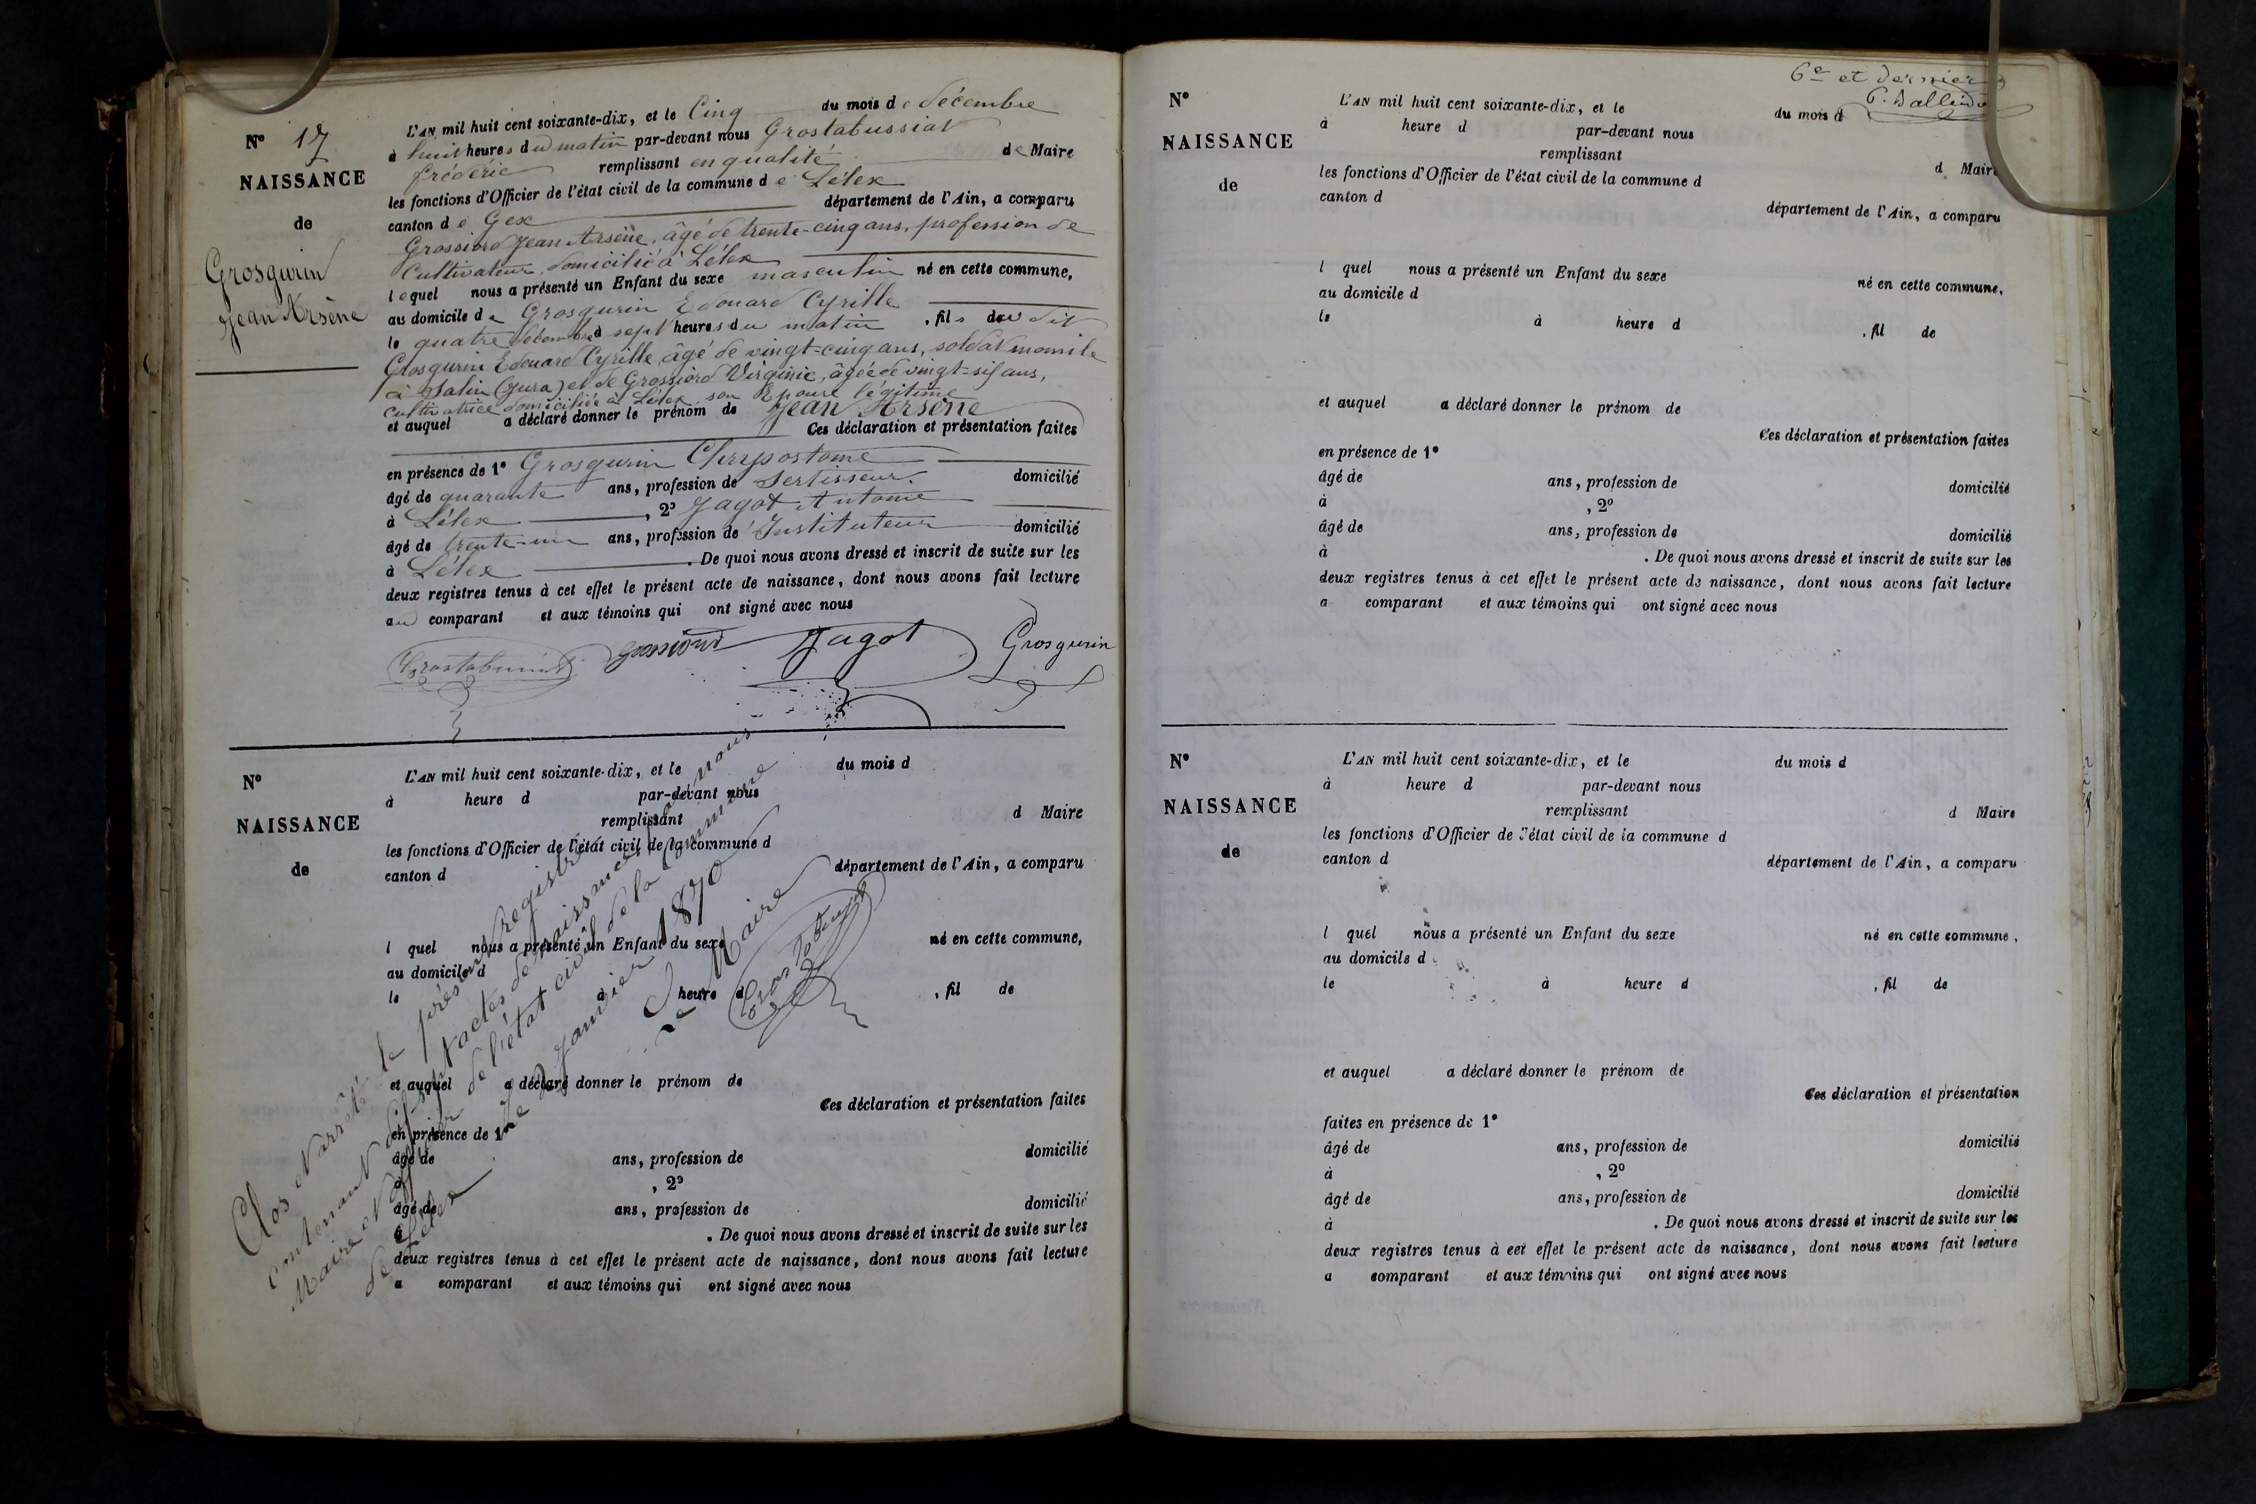 N° 17
NAISSANCE
de
Grosgurin
Jean Arsène
L'AN mil huit cent soixante-dix, et le Cinq du mois de décembre
à huit heures du matin par-devant nous Grostabussiat
frédéric remplissant en qualité de Maire
les fonctions d'Officier de l'état civil de la commune de Lélex
canton de Gex département de l'Ain, a comparu
Grossiord Jean Arsène, âgé de trente-cinq ans, profession de
Cultivateur domicilié à Lélex
lequel nous a présenté un Enfant du sexe masculin né en cette commune,
au domicile de Grosgurin Edouard Cyrille
le quatre décembre à sept heures du matin, fils du dit
Grosgurin Edouard Cyrille, âgé de vingt-cinq ans, soldat
à Salin (Jura) et de Grossiord Virginie, âgée de vingt-six ans,
cultivatrice domiciliée à Lélex, son Epouse légitime
et auquel a déclaré donner le prénom de Jean Arsène
Ces déclaration et présentation faites
en présence de 1° Grosgurin Chrysostome
âgé de quarante ans, profession de Sertisseur domicilié
à Lélex, 2° Jagot Antome
âgé de trente-un ans, profession de Instituteur domicilié
à Lélex. De quoi nous avons dressé et inscrit de suite sur les
deux registres tenus à cet effet le présent acte de naissance, dont nous avons fait lecture
au comparant et aux témoins qui ont signé avec nous
Grossiord Jagot Grosgurin
N°
NAISSANCE
de
L'AN mil huit cent soixante-dix, et le du mois d
à heure d par-devant nous
remplissant d Maire
les fonctions d'Officier de l'état civil de la commune d
canton d département de l'Ain, a comparu
l quel nous a présenté un Enfant du sexe né en cette commune,
au domicile d
le à heure d , fil de
et auquel a déclaré donner le prénom de
Ces déclaration et présentation faites
en présence de 1°
âgé de ans, profession de domicilié
à , 2°
âgé de ans, profession de domicilié
à . De quoi nous avons dressé et inscrit de suite sur les
deux registres tenus à cet effet le présent acte de naissance, dont nous avons fait lecture
a comparant et aux témoins qui ont signé avec nous
Clos et arrêté le présent Registre par nous
contenant dix-sept actes de naissances
Maire et officier de l'état civil de la Commune
de Lélex. Le Janvier 1870
Le Maire
6e et dernier
N°
NAISSANCE
de
L'AN mil huit cent soixante-dix, et le du mois d
à heure d par-devant nous
remplissant d Maire
les fonctions d'Officier de l'état civil de la commune d
canton d département de l'Ain, a comparu
l quel nous a présenté un Enfant du sexe né en cette commune,
au domicile d
le à heure d , fil de
et auquel a déclaré donner le prénom de
Ces déclaration et présentation faites
en présence de 1°
âgé de ans, profession de domicilié
à , 2°
âgé de ans, profession de domicilié
à . De quoi nous avons dressé et inscrit de suite sur les
deux registres tenus à cet effet le présent acte de naissance, dont nous avons fait lecture
a comparant et aux témoins qui ont signé avec nous
N°
NAISSANCE
de
L'AN mil huit cent soixante-dix, et le du mois d
à heure d par-devant nous
remplissant d Maire
les fonctions d'Officier de l'état civil de la commune d
canton d département de l'Ain, a comparu
l quel nous a présenté un Enfant du sexe né en cette commune,
au domicile d
le à heure d , fil de
et auquel a déclaré donner le prénom de
Ces déclaration et présentation
faites en présence de 1°
âgé de ans, profession de domicilié
à , 2°
âgé de ans, profession de domicilié
à . De quoi nous avons dressé et inscrit de suite sur les
deux registres tenus à cet effet le présent acte de naissance, dont nous avons fait lecture
a comparant et aux témoins qui ont signé avec nous